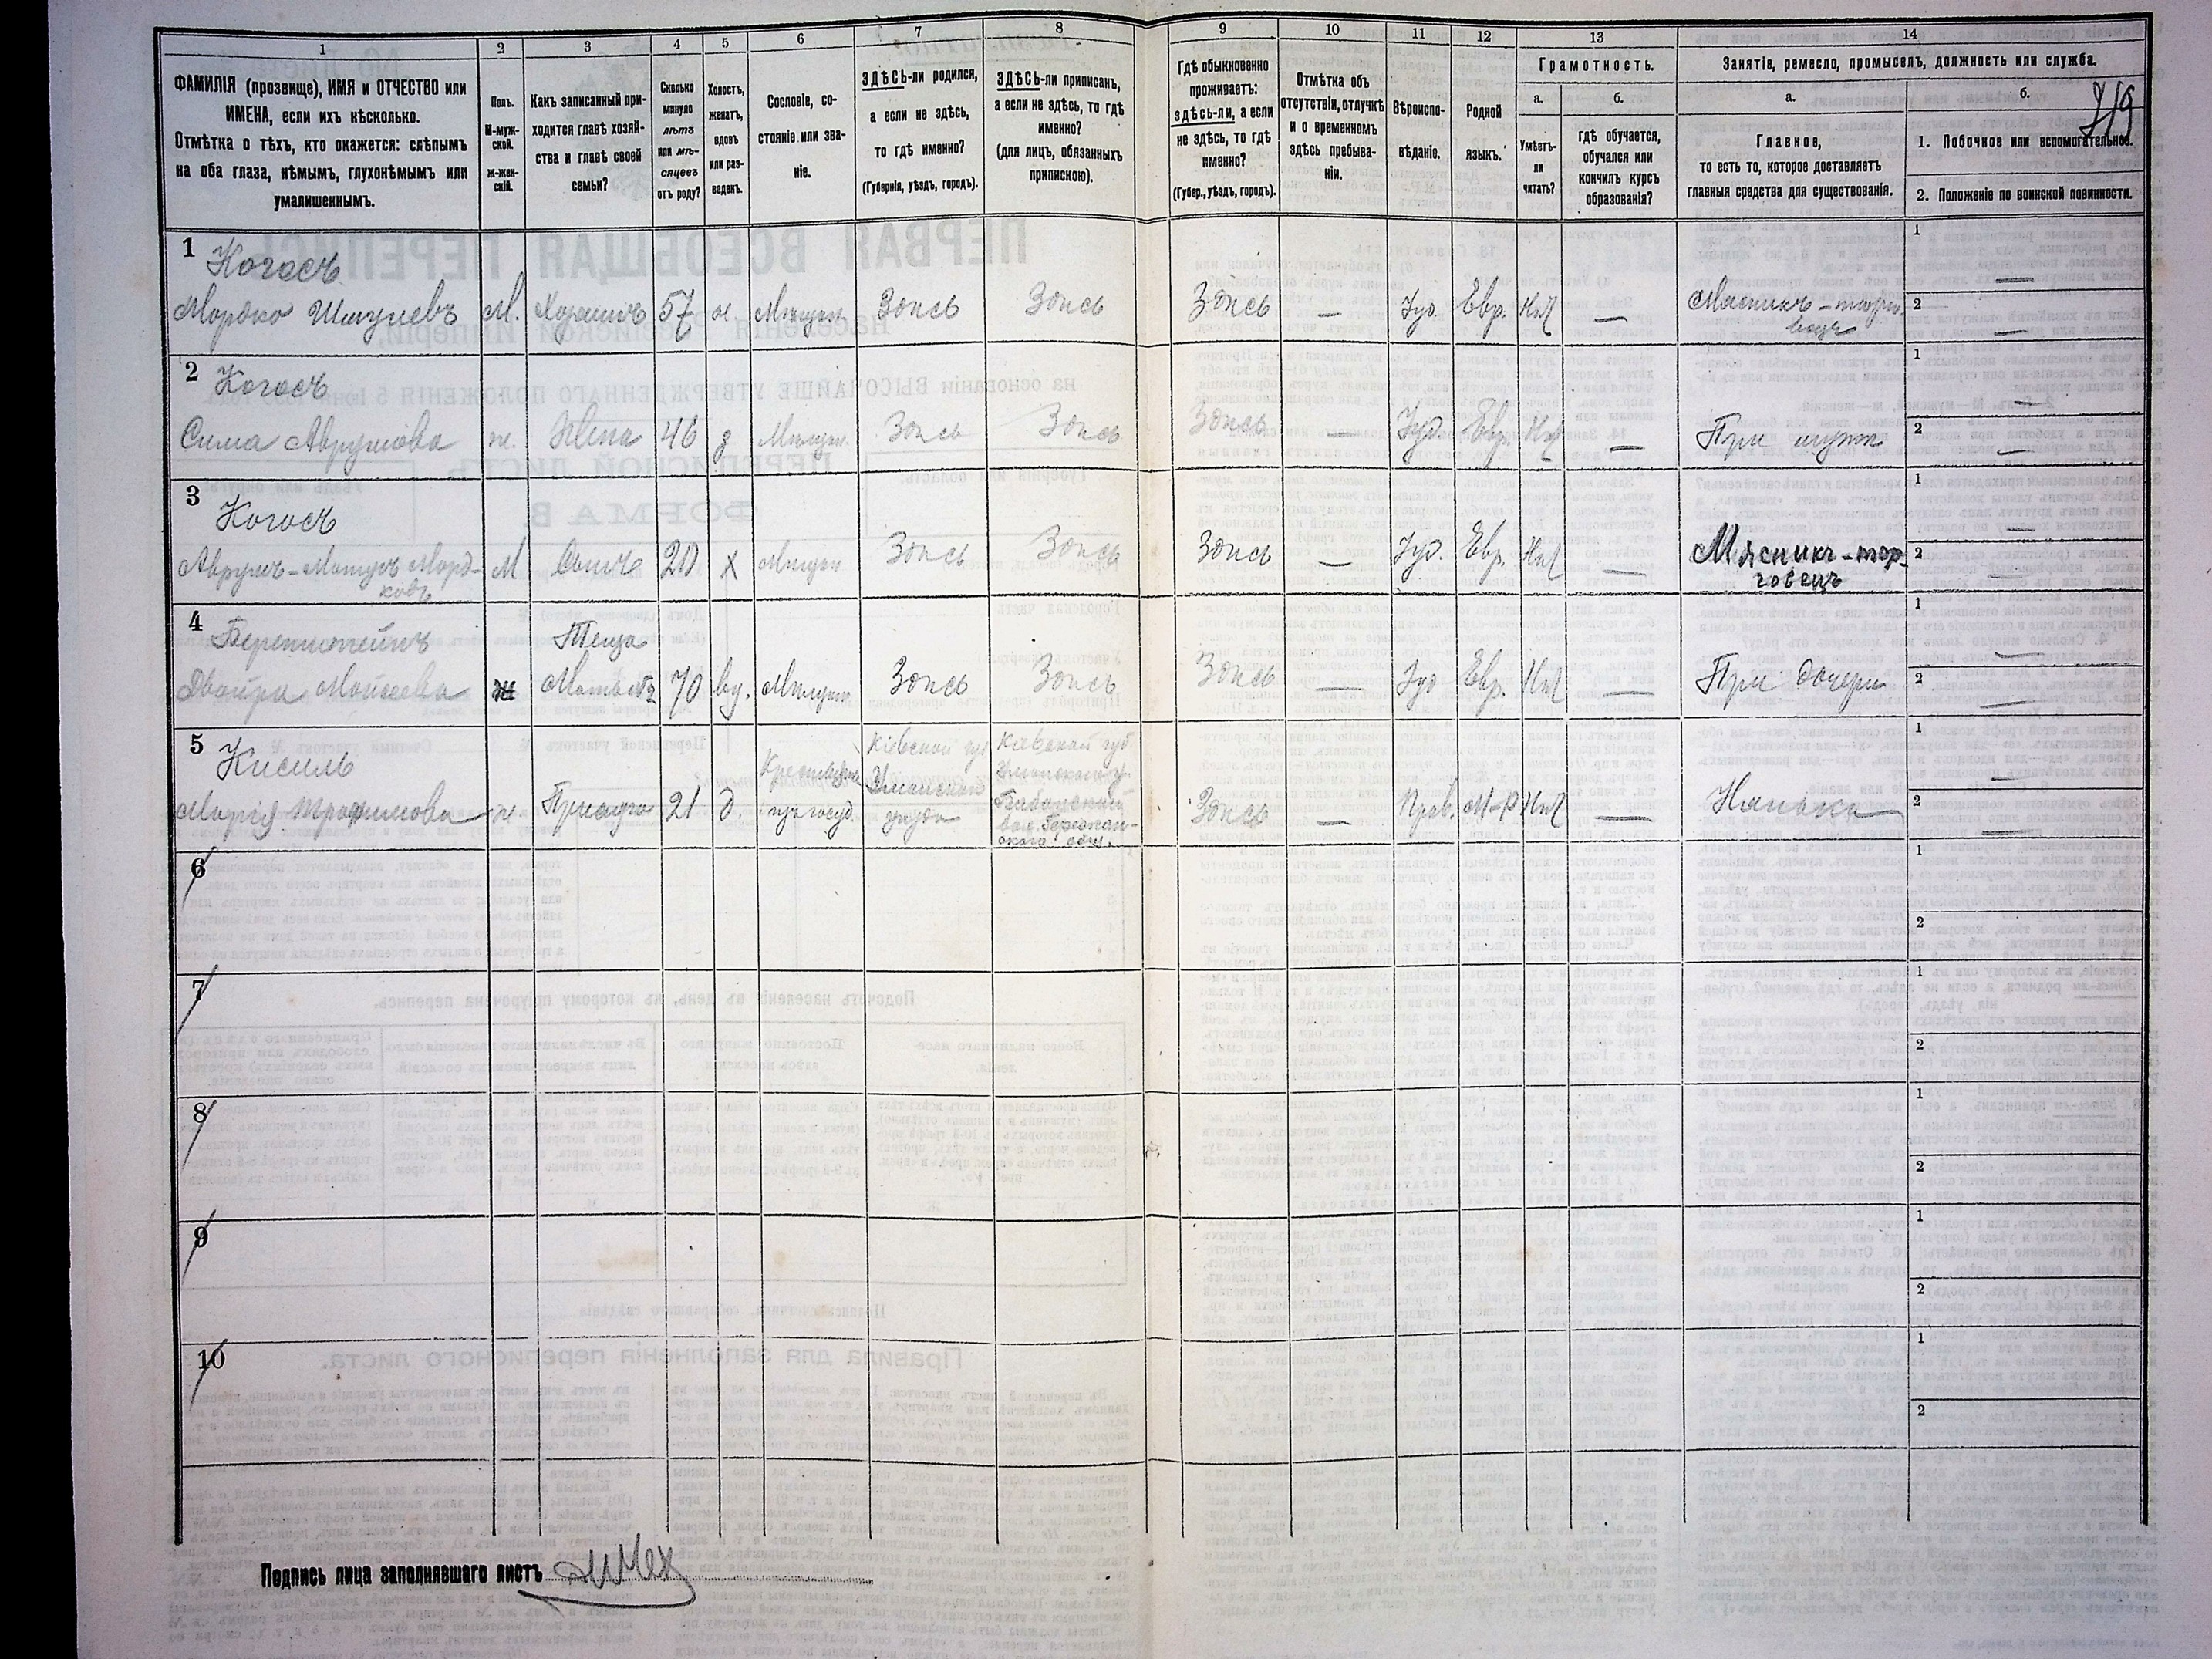 1 2 3 4 5 6 7 8 9 10 11 12 13 14
ФАМИЛІЯ (прозвище), ИМЯ и ОТЧЕСТВО или
ИМЕНА, если ихъ нѣсколько.
Отмѣтка о тѣхъ, кто окажется: слѣпымъ
на оба глаза, нѣмымъ, глухонѣмымъ или
умалишеннымъ.
Полъ.
М-муж-
ской.
ж-жен-
скій.
Какъ записанный при-
ходится главѣ хозяй-
ства и главѣ своей
семьи?
Сколько
минуло
лѣтъ
или мѣ-
сяцевъ
отъ роду?
Холостъ,
женатъ,
вдовъ
или раз-
веденъ.
Сословіе, со-
стояніе или зва-
ніе.
ЗДѢСЬ-ли родился,
а если не здѣсь,
то гдѣ именно?
(Губернія, уѣздъ, городъ).
ЗДѢСЬ-ли приписанъ,
а если не здѣсь, то гдѣ
именно?
(для лицъ, обязанныхъ
припискою).
Гдѣ обыкновенно
проживаетъ:
здѣсь-ли, а если
не здѣсь, то гдѣ
именно?
(Губер., уѣздъ, городъ).
Отмѣтка объ
отсутствіи, отлучкѣ
и о временномъ
здѣсь пребыва-
ніи.
Вѣроиспо-
вѣданіе.
Родной
языкъ.
Грамотность.
а.
Умѣетъ-
ли
читать?
б.
гдѣ обучается,
обучался или
кончилъ курсъ
образованія?
Занятіе, ремесло, промыселъ, должность или служба.
а.
Главное,
то есть то, которое доставляетъ
главныя средства для существованія.
б.
1. Побочное или вспомогательное.
2. Положеніе по воинской повинности.
1
Когосъ
Мордко Шмулевъ М. Хозяинъ 57 ж Мѣщан. Здѣсь Здѣсь Здѣсь — Іуд. Евр. Нѣт — Мясникъ-торго-
вецъ
1 —
2 —
2
Когосъ
Сима Аврумова ж. Жена 46 з Мѣщан. Здѣсь Здѣсь Здѣсь — Іуд. Евр. Нѣт — При мужѣ
1 —
2 —
3
Когосъ
Аврумъ-Мотусъ Морд-
ковъ М Сынъ 20 х Мѣщан Здѣсь Здѣсь Здѣсь — Іуд. Евр. Нѣт — Мясникъ-тор-
говецъ
1 —
2 —
4
Беренштейнъ Теща
Двойра Мойсеева ж Мать №2 70 вд. Мѣщан Здѣсь Здѣсь Здѣсь — Іуд Евр. Нѣт — При дочери
1 —
2 —
5
Кисиль
Марія Трофимова ж. Прислуга 21 д.
Крестьянка
изъ госуд.
Кіевской губ
Уманскаго
уѣзда
Кіевской губ
Уманскаго у.
Здѣсь — Прав. М-Р Нѣт — Нянька
1 —
2 —
6 1 2
7 1 2
8 1 2
9 1 2
10 1 2
Подпись лица заполнявшаго листъ